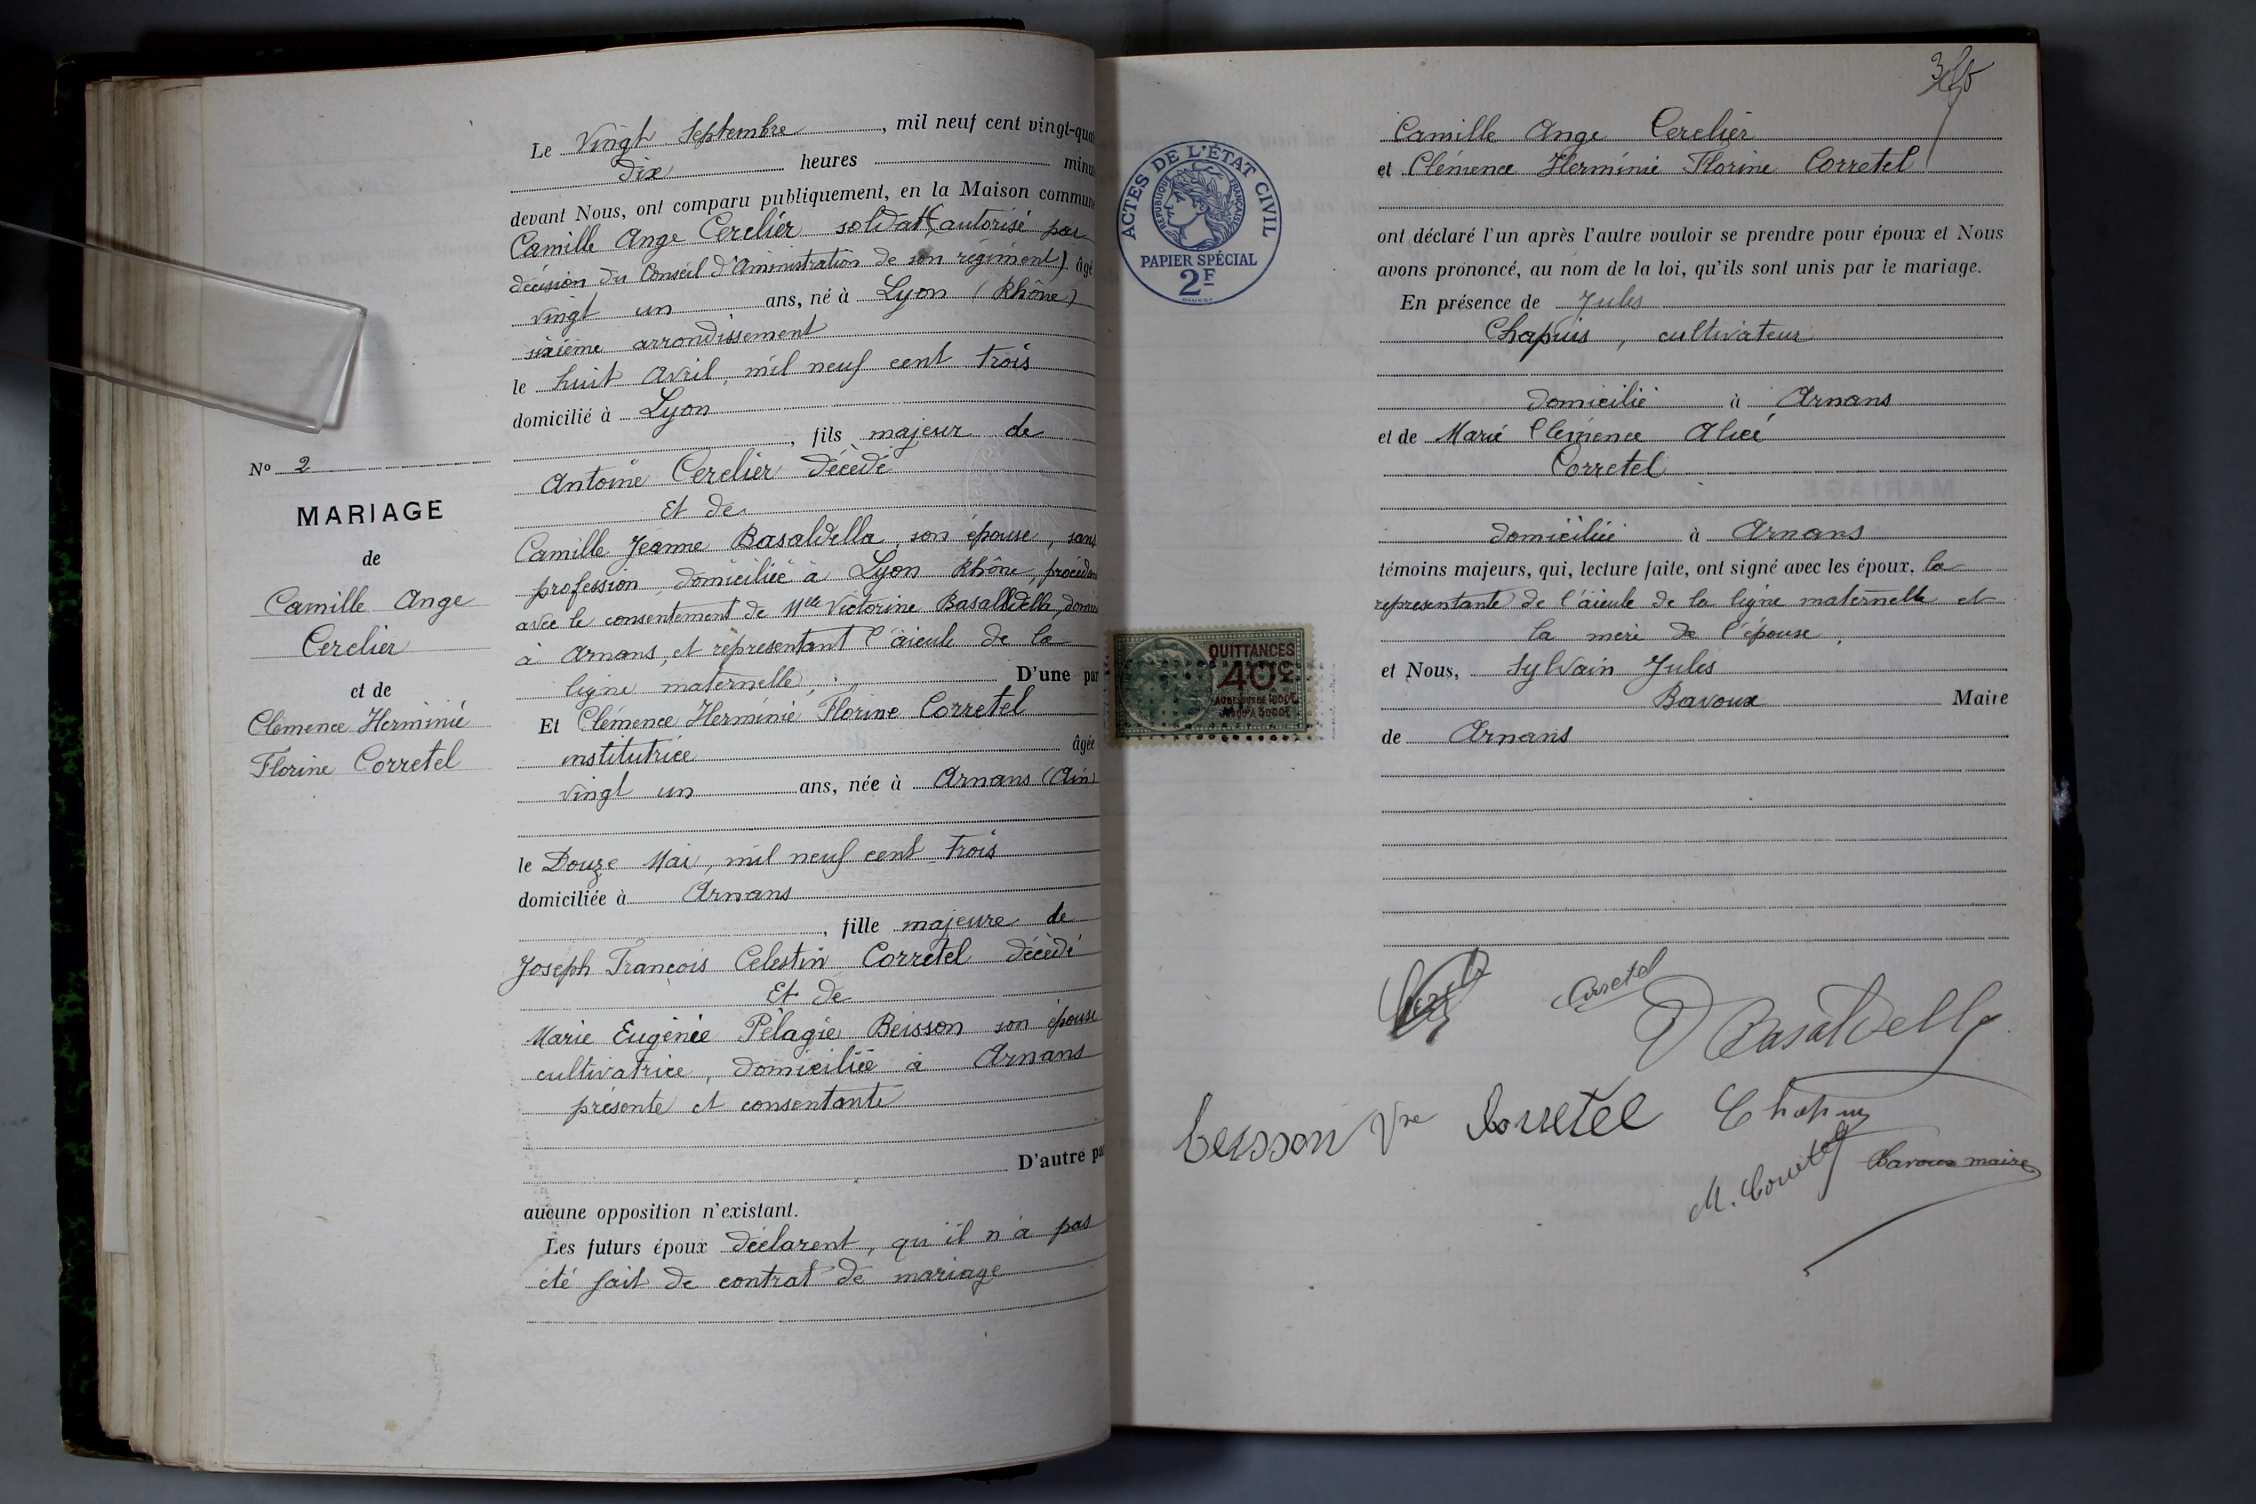 Le Vingt Septembre, mil neuf cent vingt-qua
dix heures minu
devant Nous, ont comparu publiquement, en la Maison commune
Camille Ange Cerelier soldat (autorisé par
décision du Conseil d'Aministration de son régiment) âgé
vingt un ans, né à Lyon (Rhône)
sixième arrondissement
le huit avril, mil neuf cent trois
domicilié à Lyon
, fils majeur de
Antoine Cerelier décédé
Et de
Camille Jeanne Basaldella, son épouse, sans
profession, domiciliée à Lyon Rhône, procédan
avec le consentement de Mlle Victorine Basaldella, domici
à Arnans, et représentant l'aïeule de la
ligne maternelle, D'une par
Et Clémence Herminie Florine Corretel
institutrice âgée
vingt un ans, née à Arnans (Ain)
le Douze Mai, mil neuf cent trois
domiciliée à Arnans
, fille majeure de
Joseph François Celestin Corretel décédé
Et de
Marie Eugénie Pélagie Beisson son épouse
cultivatrice, domiciliée à Arnans
présente et consentante
D'autre pa
aucune opposition n'existant.
Les futurs époux déclarent, qu'il n'a pas
été fait de contrat de mariage
No 2
MARIAGE
de
Camille Ange
Cerelier
et de
Clemence Herminie
Florine Corretel
ACTES DE L'ÉTAT CIVIL
RÉPUBLIQUE FRANÇAISE
PAPIER SPÉCIAL
2F
QUITTANCES
40c
Camille Ange Cerelier
et Clémence Herminie Florine Corretel
ont déclaré l'un après l'autre vouloir se prendre pour époux et Nous
avons prononcé, au nom de la loi, qu'ils sont unis par le mariage.
En présence de Jules
Chapuis, cultivateur
domicilié à Arnans
et de Marie Clémence Alice
Corretel
domiciliée à Arnans
témoins majeurs, qui, lecture faite, ont signé avec les époux, la
representante de l'aïeule de la ligne maternelle et
la mère de l'épouse.
et Nous, Sylvain Jules
Bavoux Maire
de Arnans
Corretel
V Basaldella
beisson Vve Corretel Chapuis
M. Corretel Bavoux maire